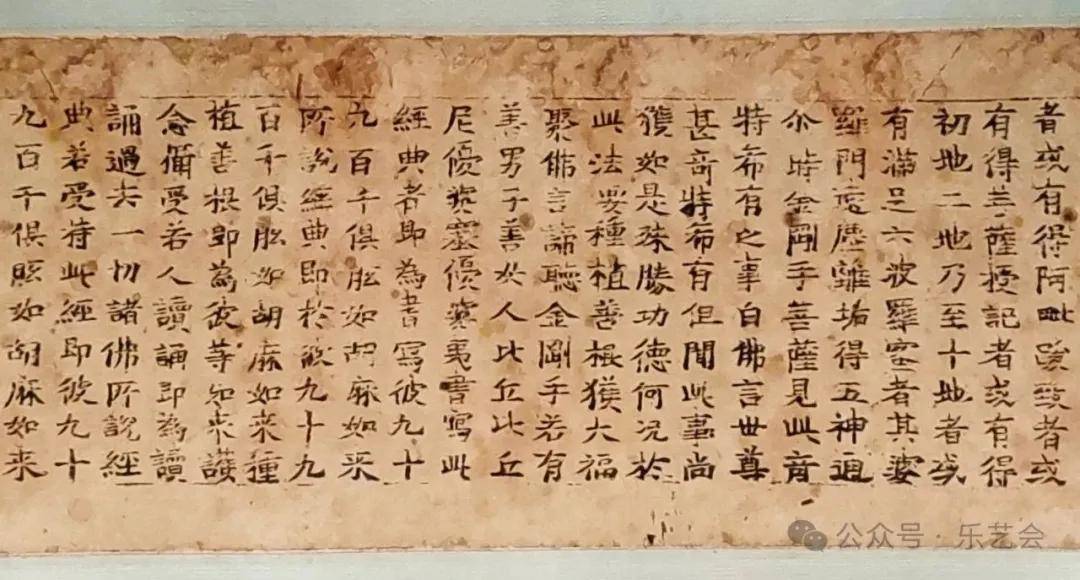 者或有得阿毗跋致者或
有得菩薩授記者或有得
初地二地乃至十地者或
有滿足六波羅蜜者其婆
羅門遠塵離垢得五神通
尒時金剛手菩薩見此奇
特希有之事白佛言世尊
甚奇特希有但聞此事尚
獲如是殊勝功德何况於
此法要種植善根獲大福
聚佛言諦聽金剛手若有
善男子善女人比丘比丘
尼優婆塞優婆夷書寫此
經典者即為書寫彼九十
九百千俱胝如胡麻如来
所說經典即於彼九十九
百千俱胝如胡麻如来種
植善根即為彼等如来護
念攝受若人讀誦即為讀
誦過去一切諸佛所說經
典若受持此經即彼九十
九百千俱胝如胡麻如来
公众号·乐艺会